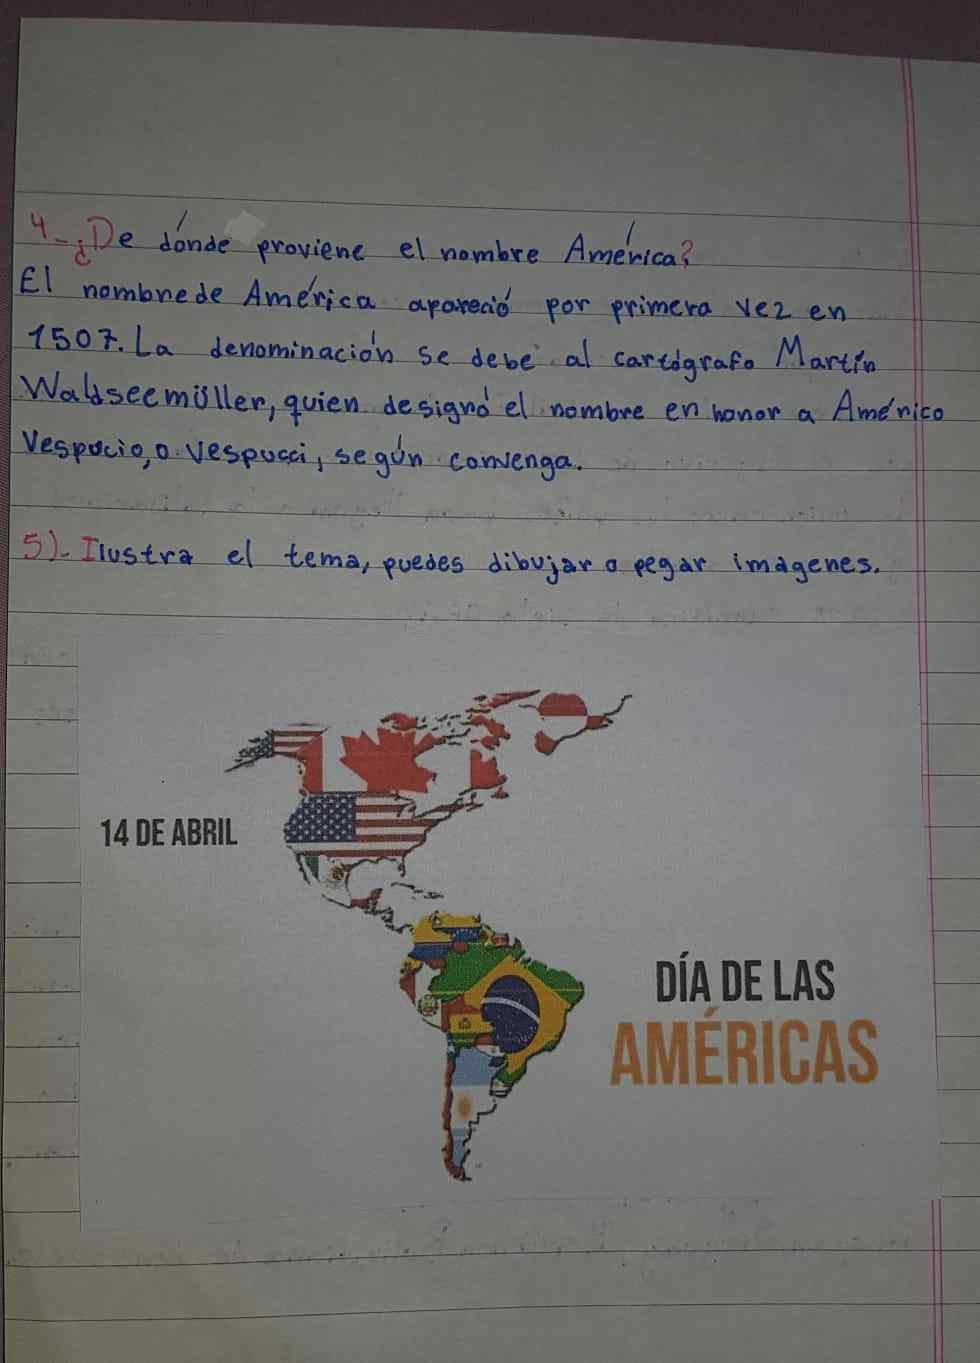 4-¿De dónde proviene el nombre América?
El nombre de América apareció por primera vez en
1507. La denominación se debe al cartógrafo Martín
Waldseemüller, quien designó el nombre en honor a Américo
Vespucio, o Vespucci, según convenga.
5)- Ilustra el tema, puedes dibujar o pegar imágenes.
14 DE ABRIL
DÍA DE LAS
AMÉRICAS